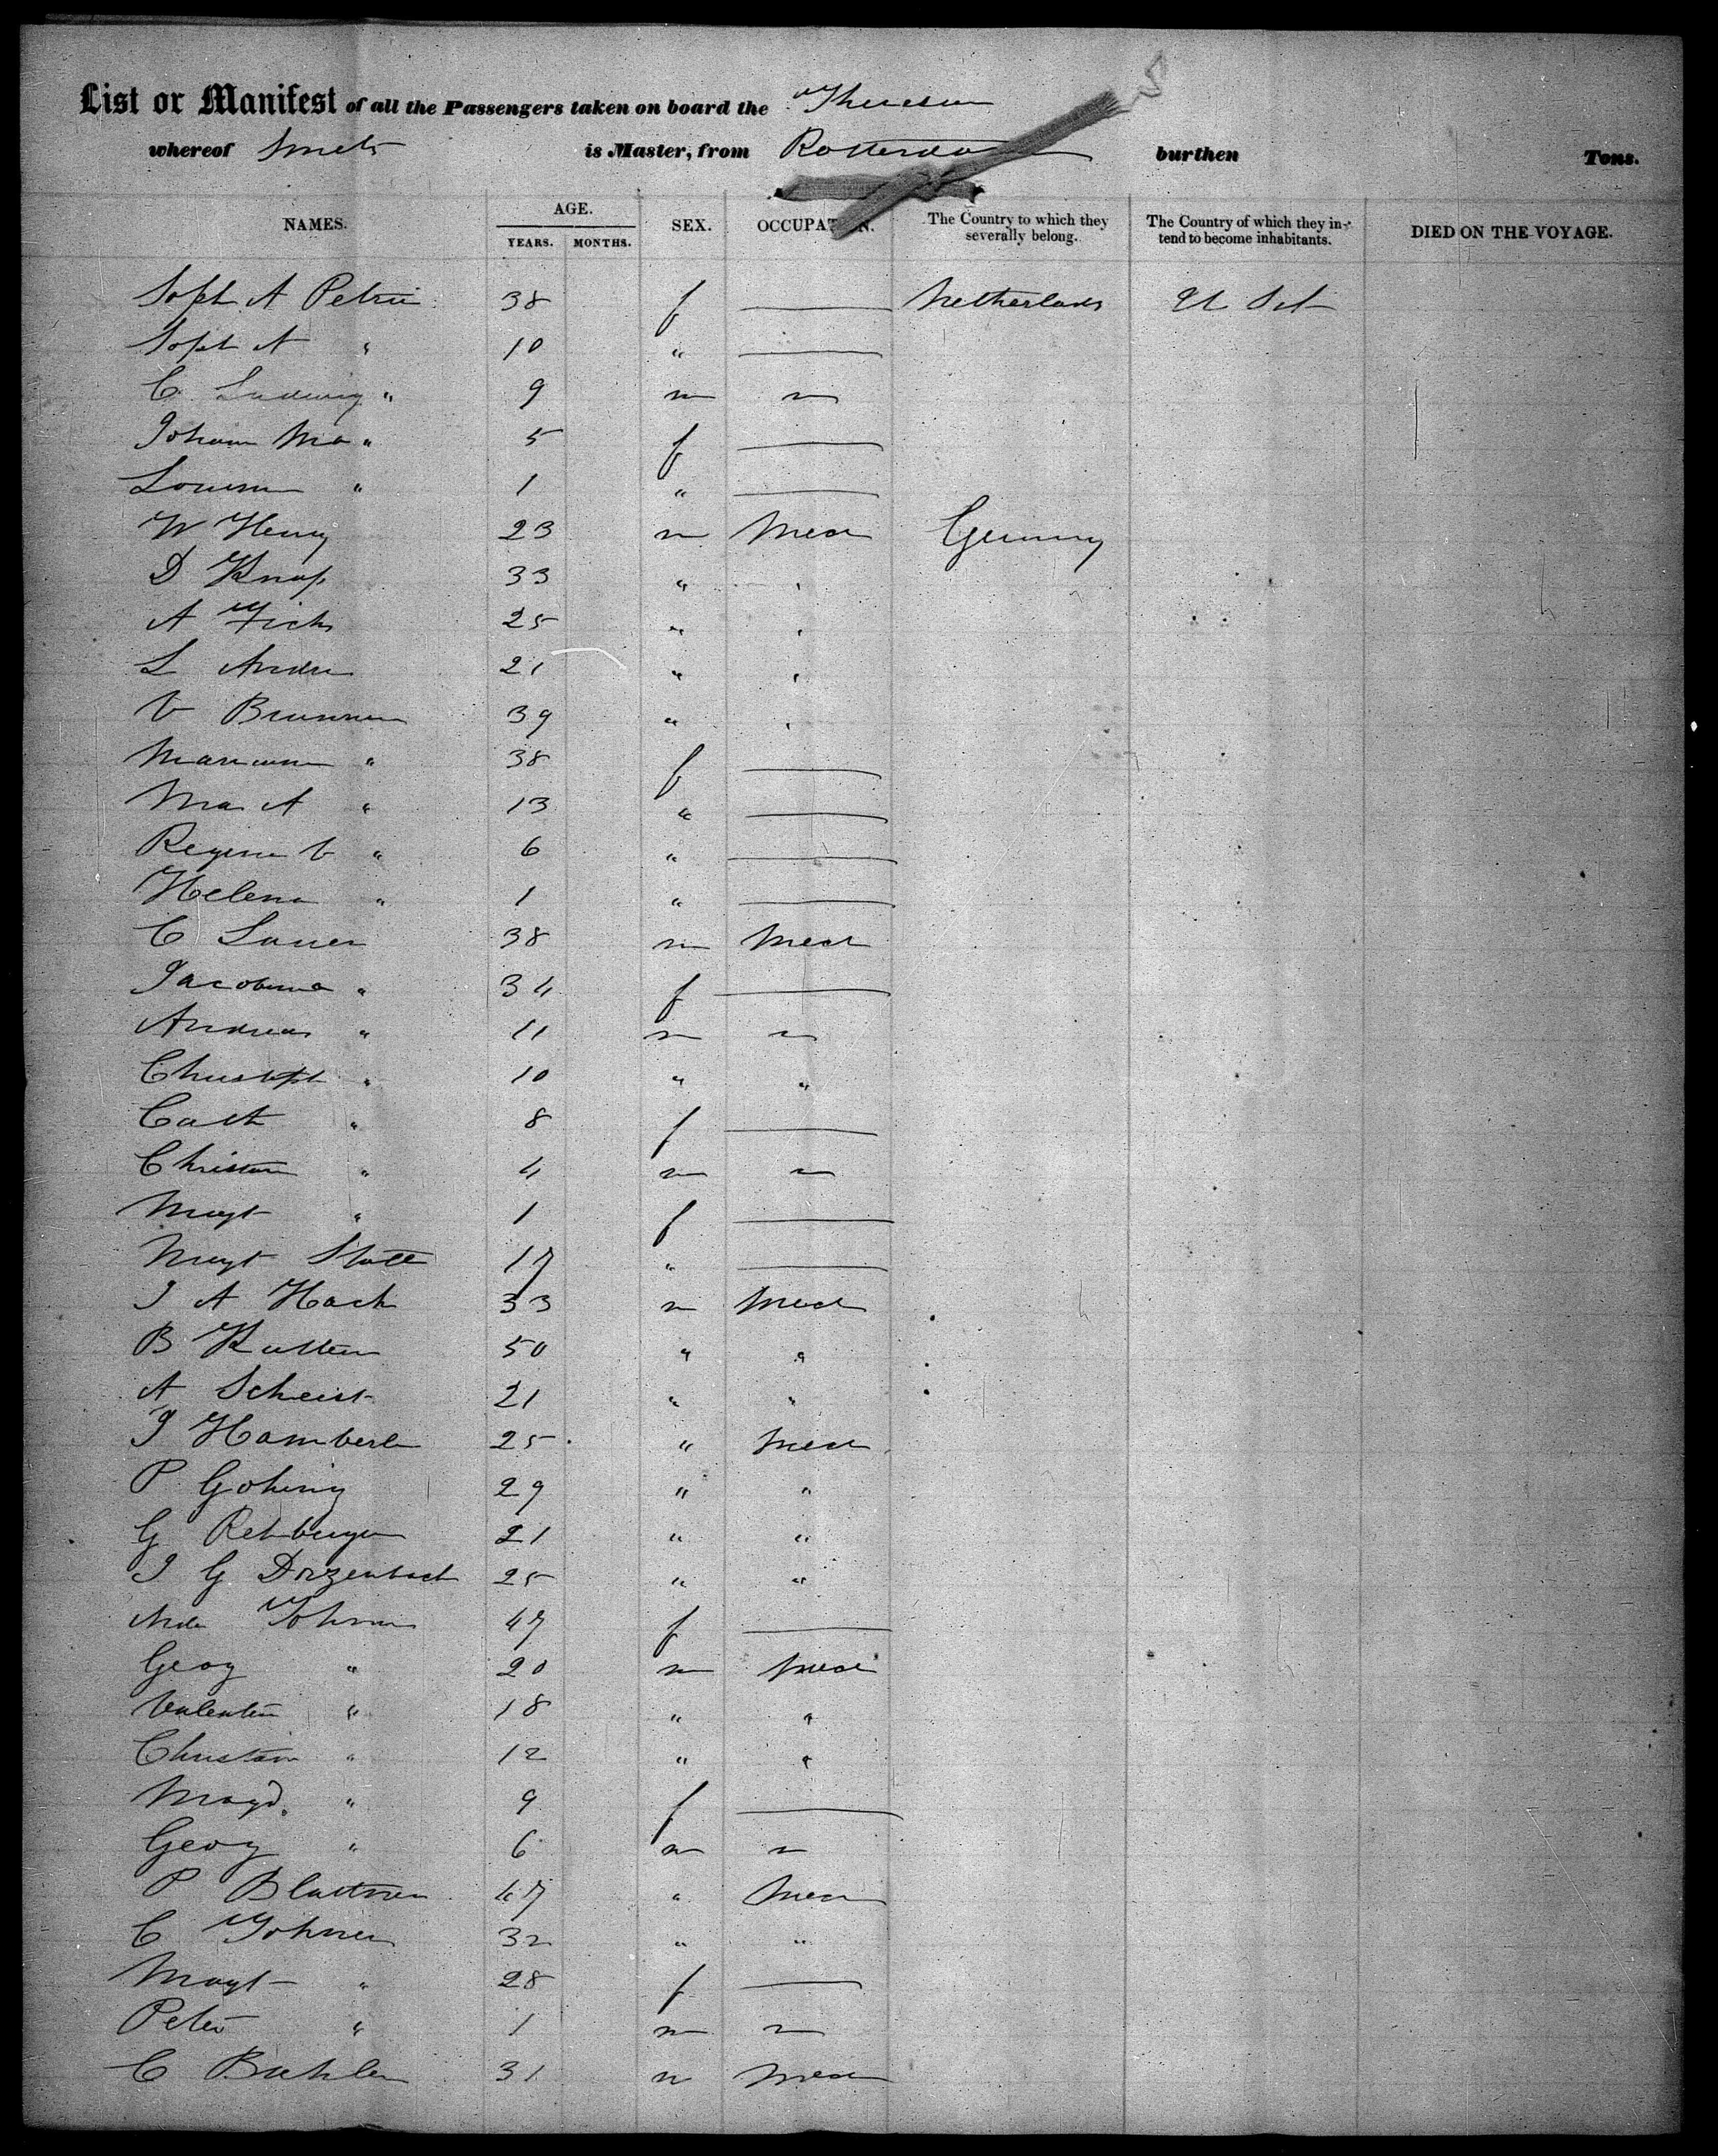 List or Manifest of all the Passengers taken on board the
whereof Smets is Master, from Rotterdam burthen Tons.
NAMES. AGE. YEARS. MONTHS. SEX. OCCUPATION. The Country to which they severally belong. The Country of which they intend to become inhabitants. DIED ON THE VOYAGE.
Soph A Petrie 38 f — Netherlands U St
Soph A " 10 " —
C Ludwig " 9 m
Johan Ma " 5 f —
" 1 " —
W Henry 23 m Mech Germany
D Knap 33 " "
A 25 " "
L Andre 21 " "
V 39 " "
" 38 f —
Mar A " 13 " —
Regina " 6 " —
Helena " 1 " —
C Lauer 38 m Mech
Jacobina " 34 f —
Andreas " 11 m
Christoph " 10 " "
Cath " 8 f —
Christian " 4 m
Magt " 1 f —
Magt 17 " —
J A Hach 33 m Mech
B 50 " "
A 21 " "
J 25 " Mech
P Gohring 29 " "
G 21 " "
J G 25 " "
47 f —
Georg " 20 m Mech
Valentin " 18 " "
Christian " 12 " "
Magd. " 9 f —
Georg " 6 m
P Blattner 47 " Mech
C 32 " "
Magt " 28 f —
Peter " 1 m
C Buhler 31 m Mech